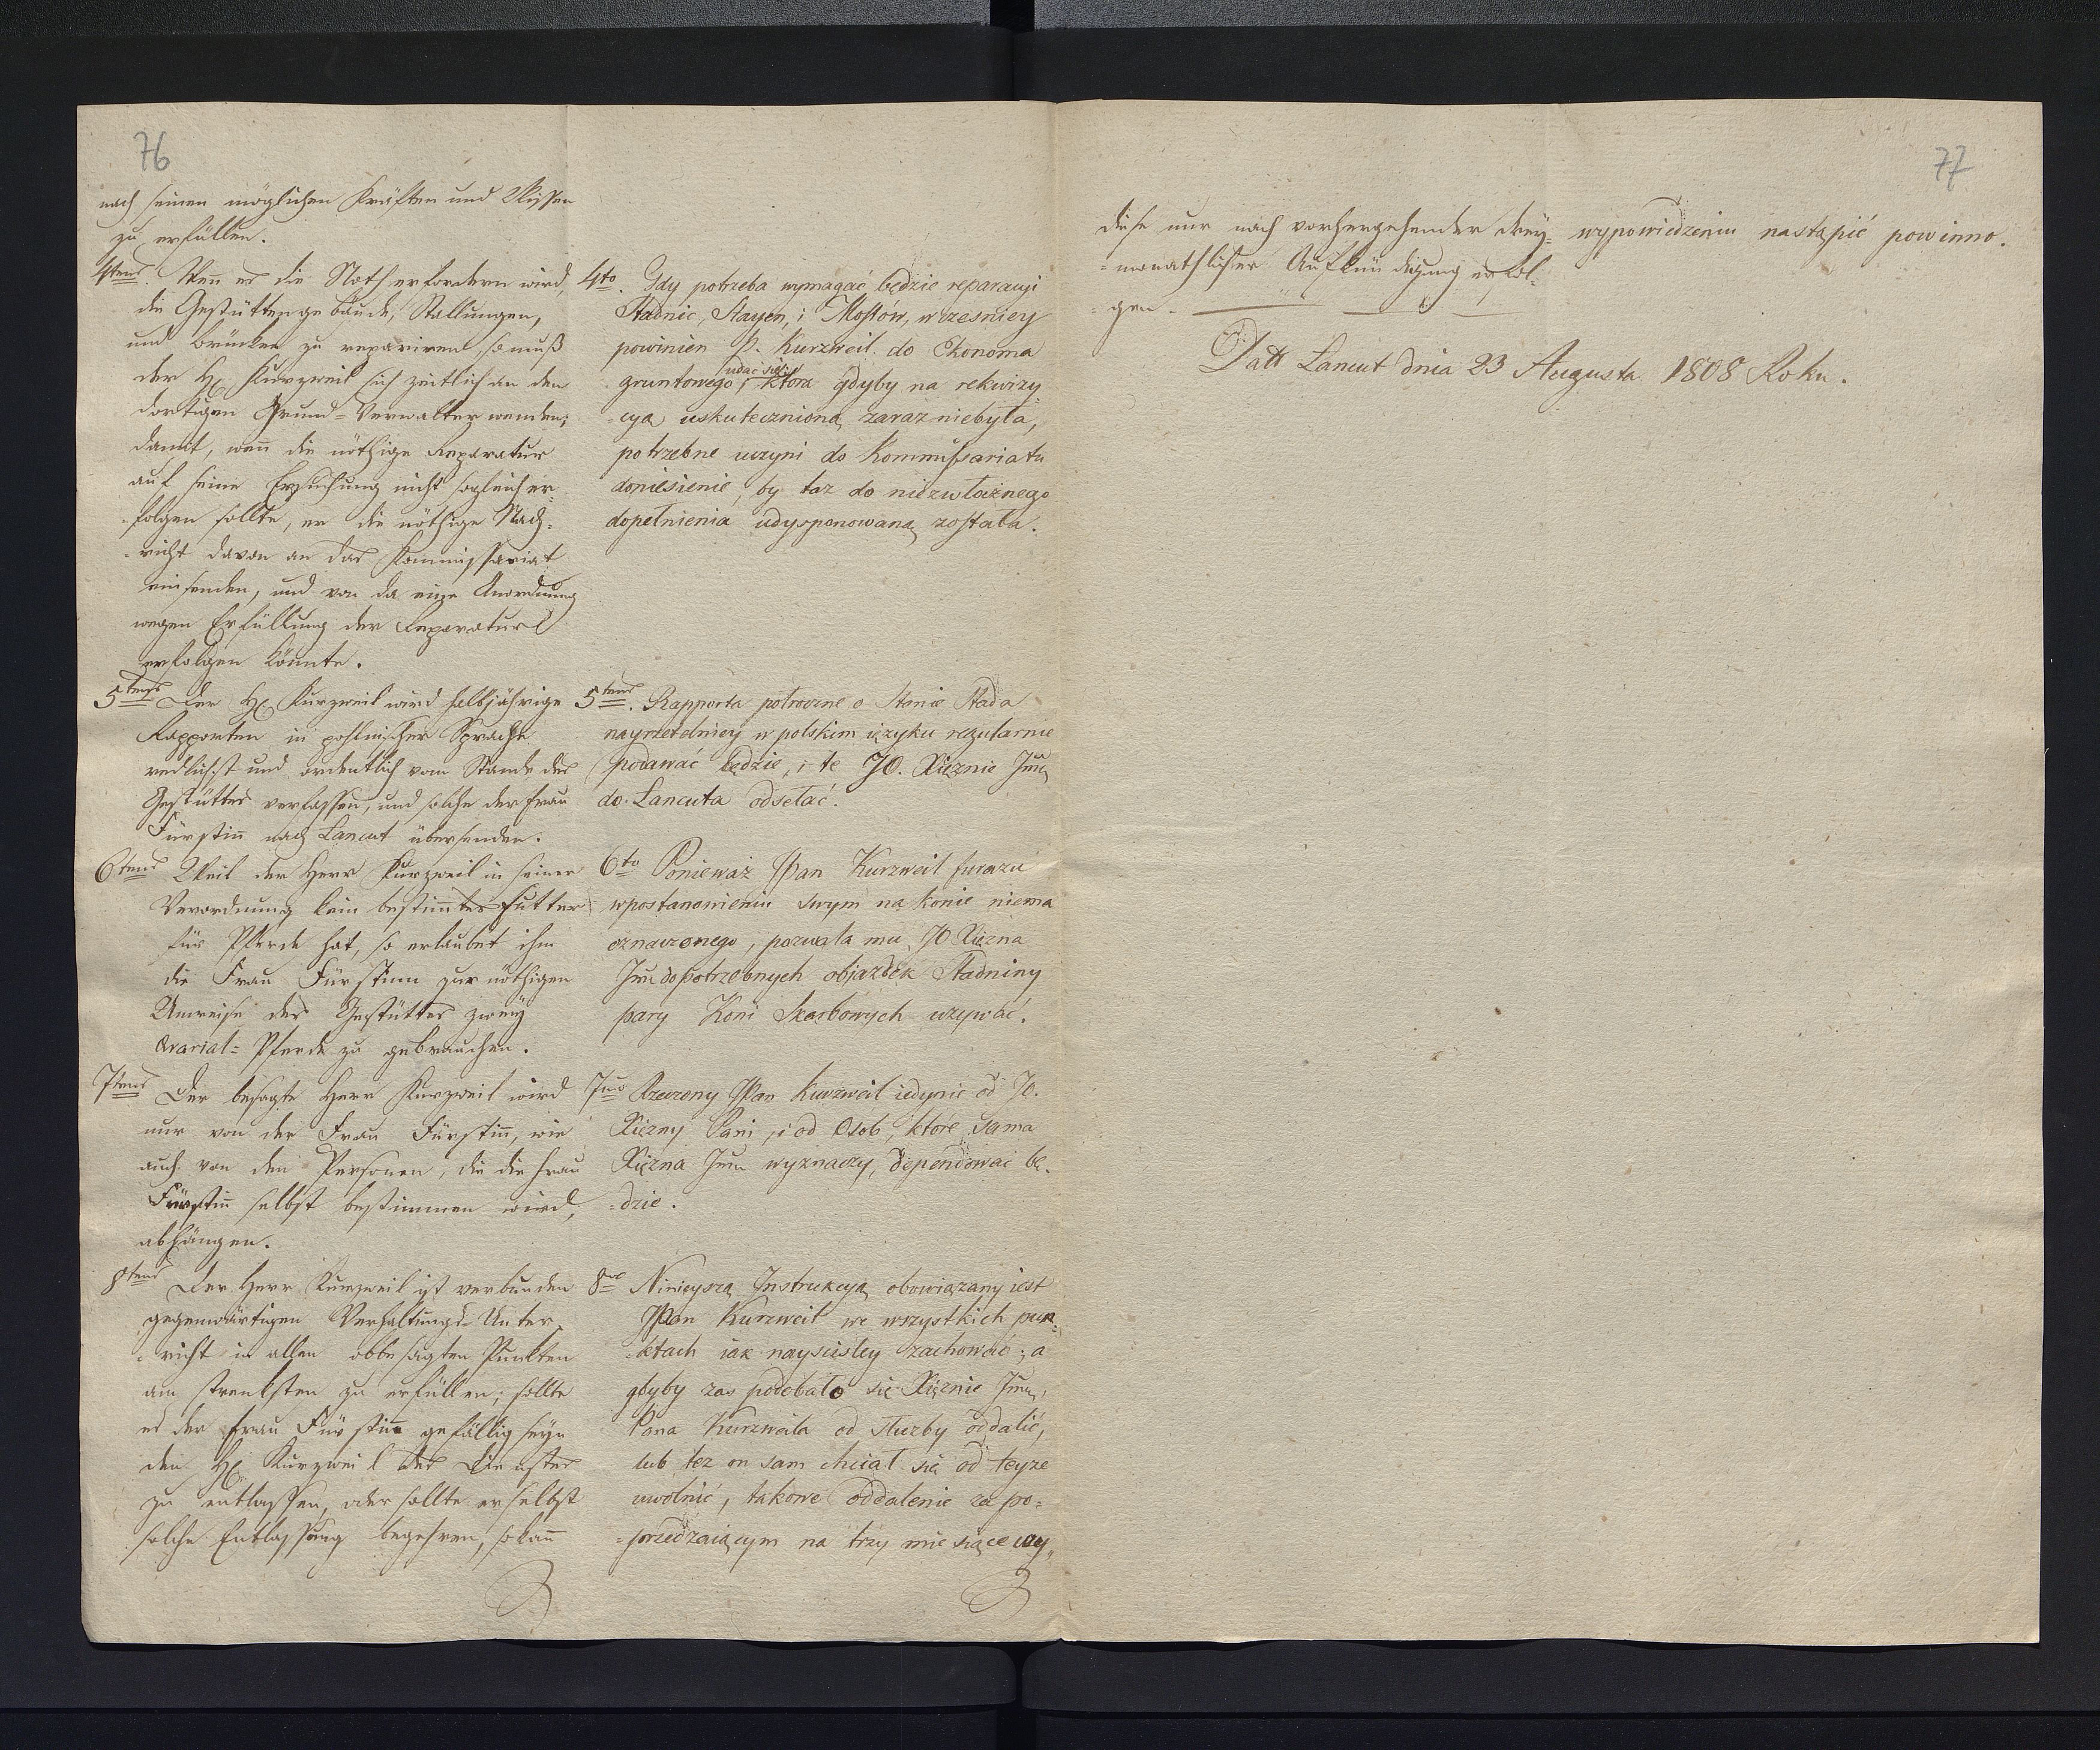 76
nach seinen möglichen Kräften und Wissen
zu erfüllen.
4tens. Wenn es die Noth erfordern wird,
die Gestüttengebäude, Stallungen,
und Brücken zu repariren, so muß
der H. Kurzweil sich zeitlich an den
dortigen Grund=Verwalter wenden;
damit, wenn die nöthige Reparatur
auf seine Ersuchung nicht sogleich er=
=folgen sollte, er die nöthige Nach=
=richt davon an das Kommissariat
einsenden, und von da eine Anordnung
wegen Erfüllung der Reparatur
erfolgen könnte.
5tens Der H. Kurzweil wird halbjährige
Rapporten in pohlnischer Sprache
redlichst und ordentlich vom Stande des
Gestüttes verfassen, und solche der Frau
Fürstin nach Lancut übersenden.
6tens Weil der Herr Kurzweil in seiner
Verordnung kein bestimtes Futter
für Pferde hat, so erlaubet ihm
die Frau Fürstinn zur nöthigen
Umreise des Gestüttes zwey
Ararial=Pferde zu gebrauchen.
7tens Der besagte Herr Kurzweil wird
nur von der Frau Fürstin, wie
auch von den Personen, die die Frau
Fürstin selbst bestimmen wird,
abhängen.
8tens Der Herr Kurzweil ist verbunden
gegenwärtigen Verhaltungs=Unter=
=richt in allen obbesagten Punkten
am strenksten zu erfüllen; sollte
es der Frau Fürstin gefällig seyn
den H. Kurzweil des Dienstes
zu entlassen, oder sollte er selbst
solche Entlassung begehren, so kann
4to. Gdy potrzeba wymagać będzie reparacyi
Stadnic, Stayen, i Mostów, wczesniey
powinien P. Kurzweil do Ekonoma
gruntowego udać się, ktora gdyby na rekwizy=
=cyą uskuteczniona zaraz niebyła,
potrzebne uczyni do Kommissariatu
doniesienie, by taż do niezwłocznego
dopełnienia udysponowana została.
5tens. Rapporta połroczne o Stanie Stada
nayrzetelniey w polskim ięzyku regularnie
podawać będzie, i te JO. Xiężnie Jmci
do Lancuta odsełać.
6to Poniewaz JPan Kurzweil furażu
w postanowieniu swym na konie niema
oznaczonego, pozwala mu JO Xiężna
Jmci do potrzebnych objazdek Stadniny
pary Koni Skarbowych uzywać.
7mo Rzeczony JPan Kurzweil iedynie od JO.
Xiężny Pani, i od Osob, które sama
Xiężna Jmci wyznaczy, dependować bę=
=dzie.
8vo Ninieyszą Instrukcyą obowiązany iest
JPan Kurzweil we wszystkich pun=
=ktach iak nayściśley zachować; a
gdyby zas podobało się Xiężnie Jmci,
Pana Kurzweila od służby oddalić,
lub też on sam chciał się od teyże
uwolnić, takowe oddalenie za po=
=przedzaiącym na trzy miesiące wy=
77
diese nur nach vorhergehender drey=
=monathlicher Aufkündigung erfol=
=gen.
wypowiedzeniu nastąpić powinno.
Datt Lancut dnia 23 Augusta 1808 Roku.